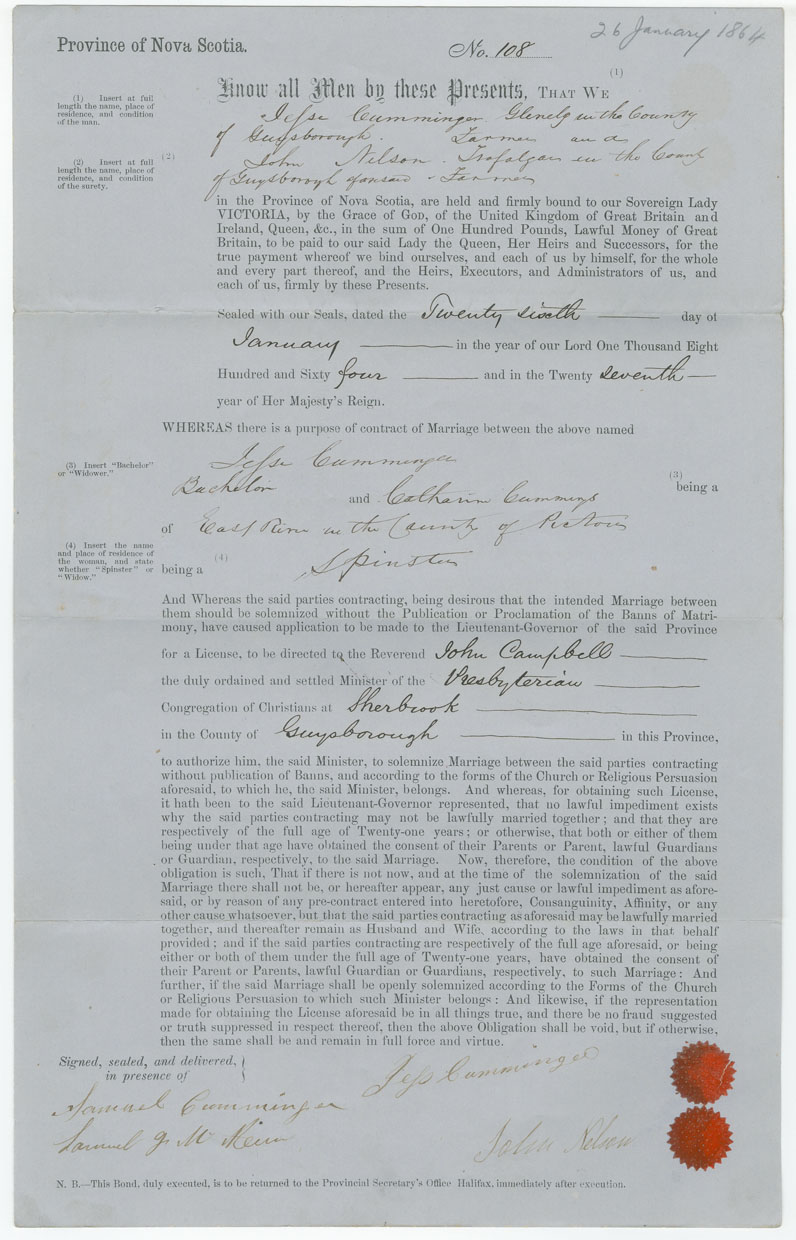 26 January 1864
Province of Nova Scotia.
No. 108
Know all Men by these Presents, THAT WE (1)
(1) Insert at full
length the name, place of
residence, and condition
of the man.
Jesse Cumminger Glenelg in the County
of Guysborough. Farmer and
(2) Insert at full
length the name, place of
residence, and condition
of the surety.
(2)
John Nelson. Trafalgar in the County
of Guysborough aforesaid - Farmer
in the Province of Nova Scotia, are held and firmly bound to our Sovereign Lady
VICTORIA, by the Grace of GOD, of the United Kingdom of Great Britain and
Ireland, Queen, &c., in the sum of One Hundred Pounds, Lawful Money of Great
Britain, to be paid to our said Lady the Queen, Her Heirs and Successors, for the
true payment whereof we bind ourselves, and each of us by himself, for the whole
and every part thereof, and the Heirs, Executors, and Administrators of us, and
each of us, firmly by these Presents.
Sealed with our Seals, dated the Twenty sixth day of
January in the year of our Lord One Thousand Eight
Hundred and Sixty four and in the Twenty seventh
year of Her Majesty's Reign.
WHEREAS there is a purpose of contract of Marriage between the above named
(3) Insert "Bachelor"
or "Widower."
Jesse Cumminger
(3)
Bachelor being a
and Catharin Cummings
of East River in the County of Pictou
(4) Insert the name
and place of residence of
the woman, and state
whether "Spinster" or
"Widow."
being a (4) Spinster
And Whereas the said parties contracting, being desirous that the intended Marriage between
them should be solemnized without the Publication or Proclamation of the Banns of Matri-
mony, have caused application to be made to the Lieutenant-Governor of the said Province
for a License, to be directed to the Reverend John Campbell
the duly ordained and settled Minister of the Presbyterian
Congregation of Christians at Sherbrook
in the County of Guysborough in this Province,
to authorize him, the said Minister, to solemnize Marriage between the said parties contracting
without publication of Banns, and according to the forms of the Church or Religious Persuasion
aforesaid, to which he, the said Minister, belongs. And whereas, for obtaining such License,
it hath been to the said Lieutenant-Governor represented, that no lawful impediment exists
why the said parties contracting may not be lawfully married together; and that they are
respectively of the full age of Twenty-one years; or otherwise, that both or either of them
being under that age have obtained the consent of their Parents or Parent, lawful Guardians
or Guardian, respectively, to the said Marriage. Now, therefore, the condition of the above
obligation is such, That if there is not now, and at the time of the solemnization of the said
Marriage there shall not be, or hereafter appear, any just cause or lawful impediment as afore-
said, or by reason of any pre-contract entered into heretofore, Consanguinity, Affinity, or any
other cause whatsoever, but that the said parties contracting as aforesaid may be lawfully married
together, and thereafter remain as Husband and Wife, according to the laws in that behalf
provided; and if the said parties contracting are respectively of the full age aforesaid, or being
either or both of them under the full age of Twenty-one years, have obtained the consent of
their Parent or Parents, lawful Guardian or Guardians, respectively, to such Marriage: And
further, if the said Marriage shall be openly solemnized according to the Forms of the Church
or Religious Persuasion to which such Minister belongs: And likewise, if the representation
made for obtaining the License aforesaid be in all things true, and there be no fraud suggested
or truth suppressed in respect thereof, then the above Obligation shall be void, but if otherwise,
then the same shall be and remain in full force and virtue.
Signed, sealed, and delivered,
in presence of
Jess Cumminger
Samuel Cumminger
Samuel J. Mc Keen
John Nelson
N. B.—This Bond, duly executed, is to be returned to the Provincial Secretary's Office Halifax, immediately after execution.